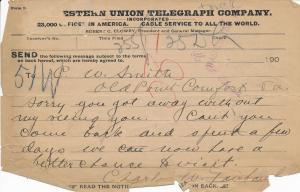 WESTERN UNION TELEGRAPH COMPANY.
INCORPORATED
23,000 OFFICES IN AMERICA. CABLE SERVICE TO ALL THE WORLD.
ROBERT C. CLOWRY, President and General Manager.
Receiver's No. Time Filed
SEND the following message subject to the terms
on back hereof, which are hereby agreed to. 190
To W. Smith
Old Point Comfort Va
Sorry you got away without
my seeing you. Can't you
come back and spend a few
days we can now have a
better chance to visit.
Charles W.
READ THE NOTICE ON BACK.